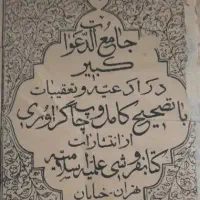 جامع الدعوات
کبیر
در ادعیه و تعقیبات
با تصحیح کامل و چاپ گراوری
از انتشارات
کتابفروشی علمیه اسلامیه
تهران خیابان